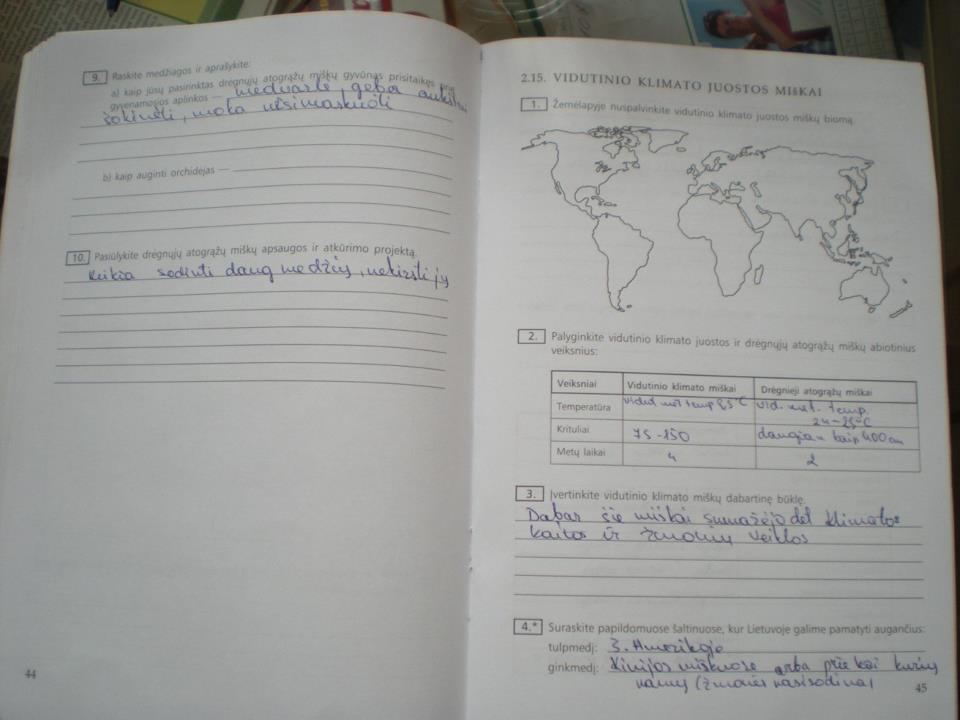 9. Raskite medžiagos ir aprašykite:
a) kaip jūsų pasirinktas drėgnųjų atogrąžų miškų gyvūnas prisitaikęs prie
gyvenamosios aplinkos — medvarlė, geba aukštai
šokinėti, moka užsimaskuoti
b) kaip auginti orchidėjas —
10. Pasiūlykite drėgnųjų atogrąžų miškų apsaugos ir atkūrimo projektą.
Reikia sodinti daug medžių, nekirsti jų
44
2.15. VIDUTINIO KLIMATO JUOSTOS MIŠKAI
1. Žemėlapyje nuspalvinkite vidutinio klimato juostos miškų biomą.
2. Palyginkite vidutinio klimato juostos ir drėgnųjų atogrąžų miškų abiotinius
veiksnius:
Veiksniai Vidutinio klimato miškai Drėgnieji atogrąžų miškai
Temperatūra vidut. met temp 8,5°C vid. met. temp.
24-25°C
Krituliai 75-150 daugiau kaip 400 cm
Metų laikai 4 2
3. Įvertinkite vidutinio klimato miškų dabartinę būklę.
Dabar šie miškai sumažėjo dėl klimatos
kaitos ir žmonių veiklos
4.* Suraskite papildomuose šaltiniuose, kur Lietuvoje galime pamatyti augančius:
tulpmedį: Š. Amerikoje
ginkmedį: Kinijos miškuose arba prie kai kurių
namų (žmonės pasisodina)
45